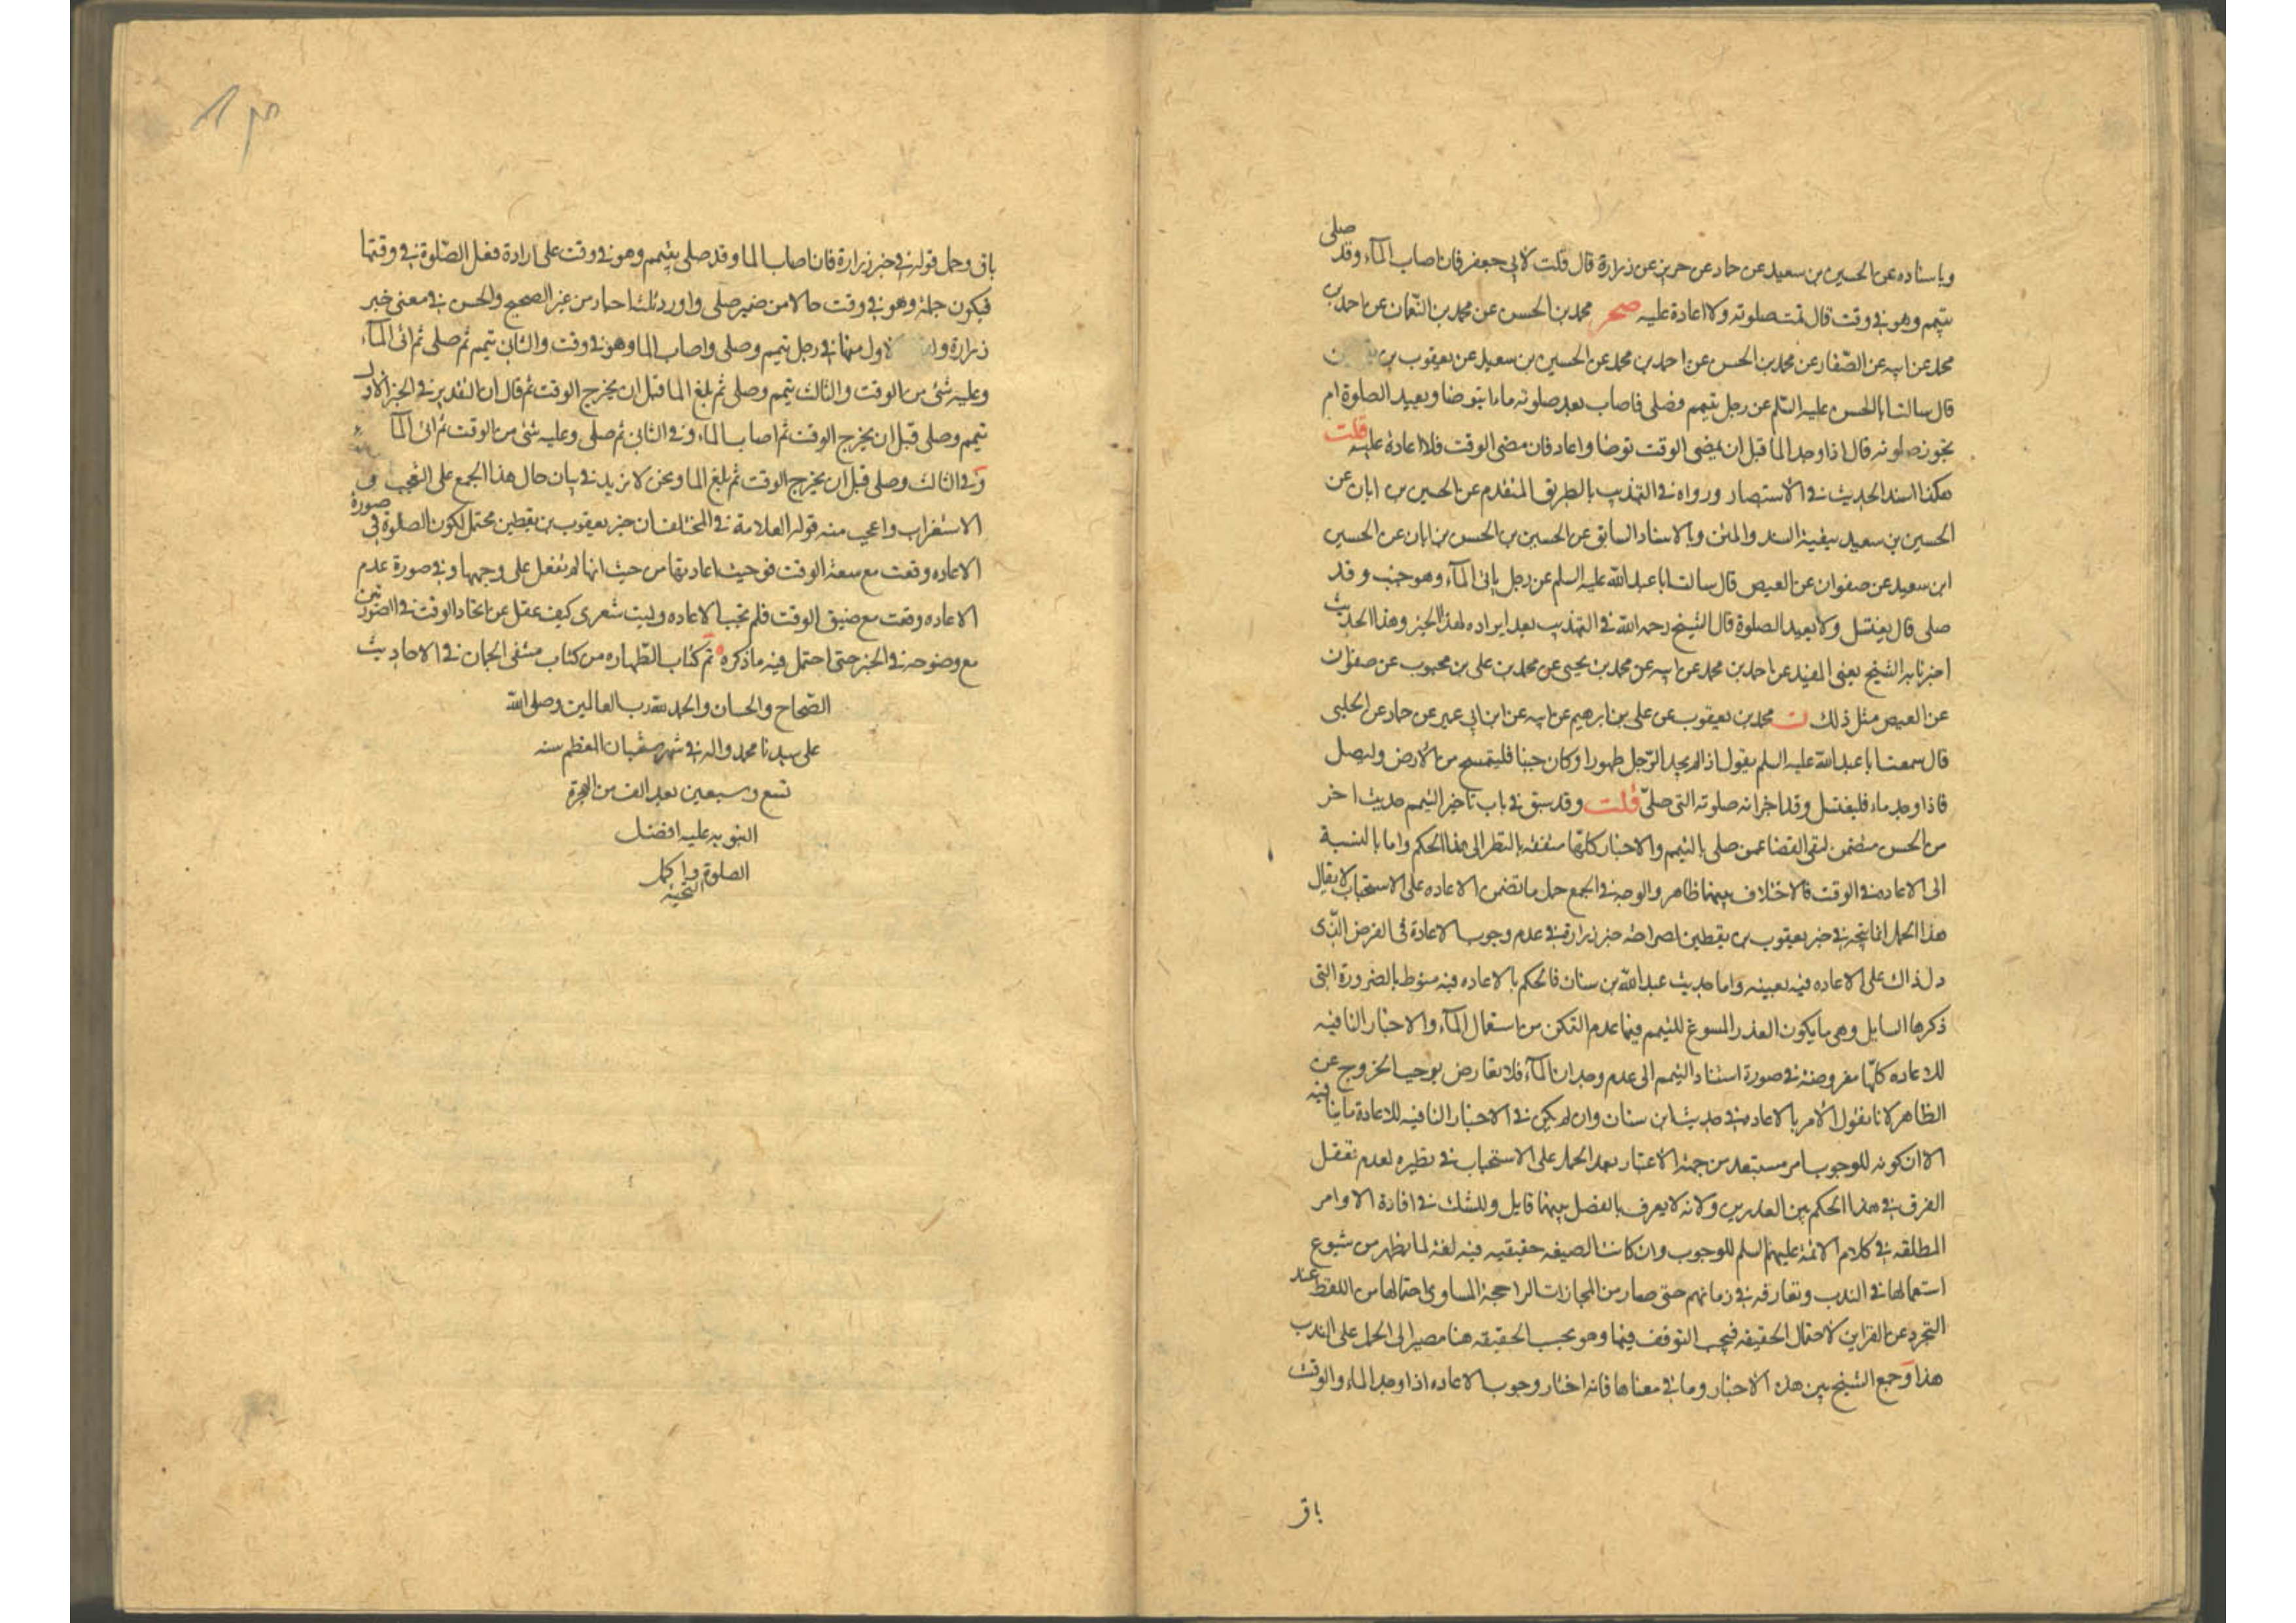 وباسناده عن الحسين بن سعيد عن حماد عن حريز عن زرارة قال قلت لابي جعفر فان اصاب المآء وقد صلى
بتيمم وهو في وقت قال تمت صلوته ولا اعادة عليه صحر محمد بن الحسن عن محمد بن النعمان عن احمد بن
محمد عن ابيه عن الصفار عن محمد بن الحسن عن احمد بن محمد عن الحسين بن سعيد عن يعقوب بن
قال سالت ابا الحسن عليه السلم عن رجل تيمم فصلى فاصاب بعد صلوته ماء ايتوضا ويعيد الصلوة ام
تجوز صلوته قال اذا وجد الما قبل ان يمضي الوقت توضا واعاد فان مضى الوقت فلا اعادة عليه قلت
هكذا اسند الحديث في الاستبصار ورواه في التهذيب بالطريق المتقدم عن الحسين بن ابان عن
الحسين بن سعيد ببقية السند والمتن وبالاسناد السابق عن الحسين بن الحسن بن ابان عن الحسين
ابن سعيد عن صفوان عن العيص قال سالت ابا عبد الله عليه السلم عن رجل ياتى المآء وهو جنب وقد
صلى قال يغتسل ولا يعيد الصلوة قال الشيخ رحمه الله في التهذيب بعد ايراده لهذا الخبر وهذا الحديث
اخبرنا به الشيخ يعنى المفيد عن احمد بن محمد عن ابيه عن محمد بن يحيى عن محمد بن على بن محبوب عن صفوان
عن العيص مثل ذلك ن محمد بن يعقوب عن على بن ابرهيم عن ابيه عن ابن ابي عمير عن حماد عن الحلبى
قال سمعت ابا عبد الله عليه السلم يقول اذا لم يجد الرجل طهورا وكان جنبا فليتمسح من الارض وليصل
فاذا وجد ماء فليغتسل وقد اجزانه صلوته التى صلى قلت وقد سبق في باب تاخير التيمم حديث اخر
من الحسن متضمن لنفى القضا عمن صلى بالتيمم والاخبار كلها متفقة بالنظر الى هذا الحكم واما بالنسبة
الى الاعادة في الوقت فالاختلاف بينها ظاهر والوجه في الجمع حمل ما تضمن الاعاده على الاستحباب لا يقال
هذا الحمل انما يتجه في خبر يعقوب بن يقطين لصراحة خبر زرارة في عدم وجوب الاعادة في الفرض الذى
دل ذاك على الاعاده فيه بعينه واما حديث عبد الله بن سنان فالحكم بالاعاده فيه منوط بالضرورة التى
ذكرها السايل وهى ما يكون العذر المسوغ للتيمم فيها عدم التمكن من استعمال المآء والاخبار النافيه
للاعاده كلها مفروضة في صورة استناد التيمم الى عدم وجدان المآء فلا تعارض يوجب الخروج عن
الظاهر لانا نقول الامر بالاعادة في حديث ابن سنان وان لم يكن في الاخبار النافيه للاعادة ما ينافيه
الا ان كونه للوجوب امر مستبعد من جهة الاعتبار بعد الحمل على الاستحباب في نظيره لعدم تعقل
الفرق في هذا الحكم بين العذرين ولانه لا يعرف بالفصل بينهما قايل وللشك في افادة الاوامر
المطلقه في كلام الائمة عليهم السلم للوجوب وان كانت الصيغه حقيقيه فيه لغة لما يظهر من شيوع
استعمالها في الندب وتعارفه في زمانهم حتى صار من المجازات الراجحة المساوى احتمالها من اللفظ عند
التجرد عن القراين لاحتمال الحقيقه فيجب التوقف فيها وهو بحسب الحقيقه هنا مصير الى الحمل على الندب
هذا وجمع الشيخ بين هذه الاخبار وما في معناها فانه اختار وجوب الاعاده اذا وجد الماء والوقت
باق
باق وحمل قوله في خبر زرارة فان اصاب الما وقد صلى بتيمم وهو في وقت على ارادة فعل الصلوة في وقتها
فيكون جملة وهو في وقت حالا من ضمير صلى واورد ثلثة اخبار من غير الصحيح والحسن في معنى خبر
زرارة الاول منها في رجل تيمم وصلى واصاب الما وهو في وقت والثانى تيمم ثم صلى ثم اتى المآء
وعليه شئ من الوقت والثالث تيمم وصلى ثم بلغ الما قبل ان يخرج الوقت ثم قال ان التقدير في الخبر الاول
تيمم وصلى قبل ان يخرج الوقت ثم اصاب المآء وفي الثانى ثم صلى وعليه شئ من الوقت ثم اتى المآ
وفي الثالث وصلى قبل ان يخرج الوقت ثم بلغ الما ونحن لا نزيد في بيان حال هذا الجمع على التعجب و
الاستغراب واعجب منه قول العلامة في المختلف ان خبر يعقوب بن يقطين محتمل لكون الصلوة في صورة
الاعاده وقعت مع سعة الوقت فوجبت اعادتها من حيث انها لم تفعل على وجهها وفي صورة عدم
الاعاده وقعت مع ضيق الوقت فلم تجب الاعاده وليت شعرى كيف غفل عن اتحاد الوقت في الصورتين
مع وضوحه في الخبر حتى احتمل فيه ما ذكره تم كتاب الطهاره من كتاب منتقى الجمان في الاحاديث
الصحاح والحسان والحمد لله رب العالمين وصلى الله
على سيدنا محمد واله في شهر شعبان المعظم سنه
تسع وسبعين بعد الف من الهجرة
النبويه عليه افضل
الصلوة واكمل
التحيه